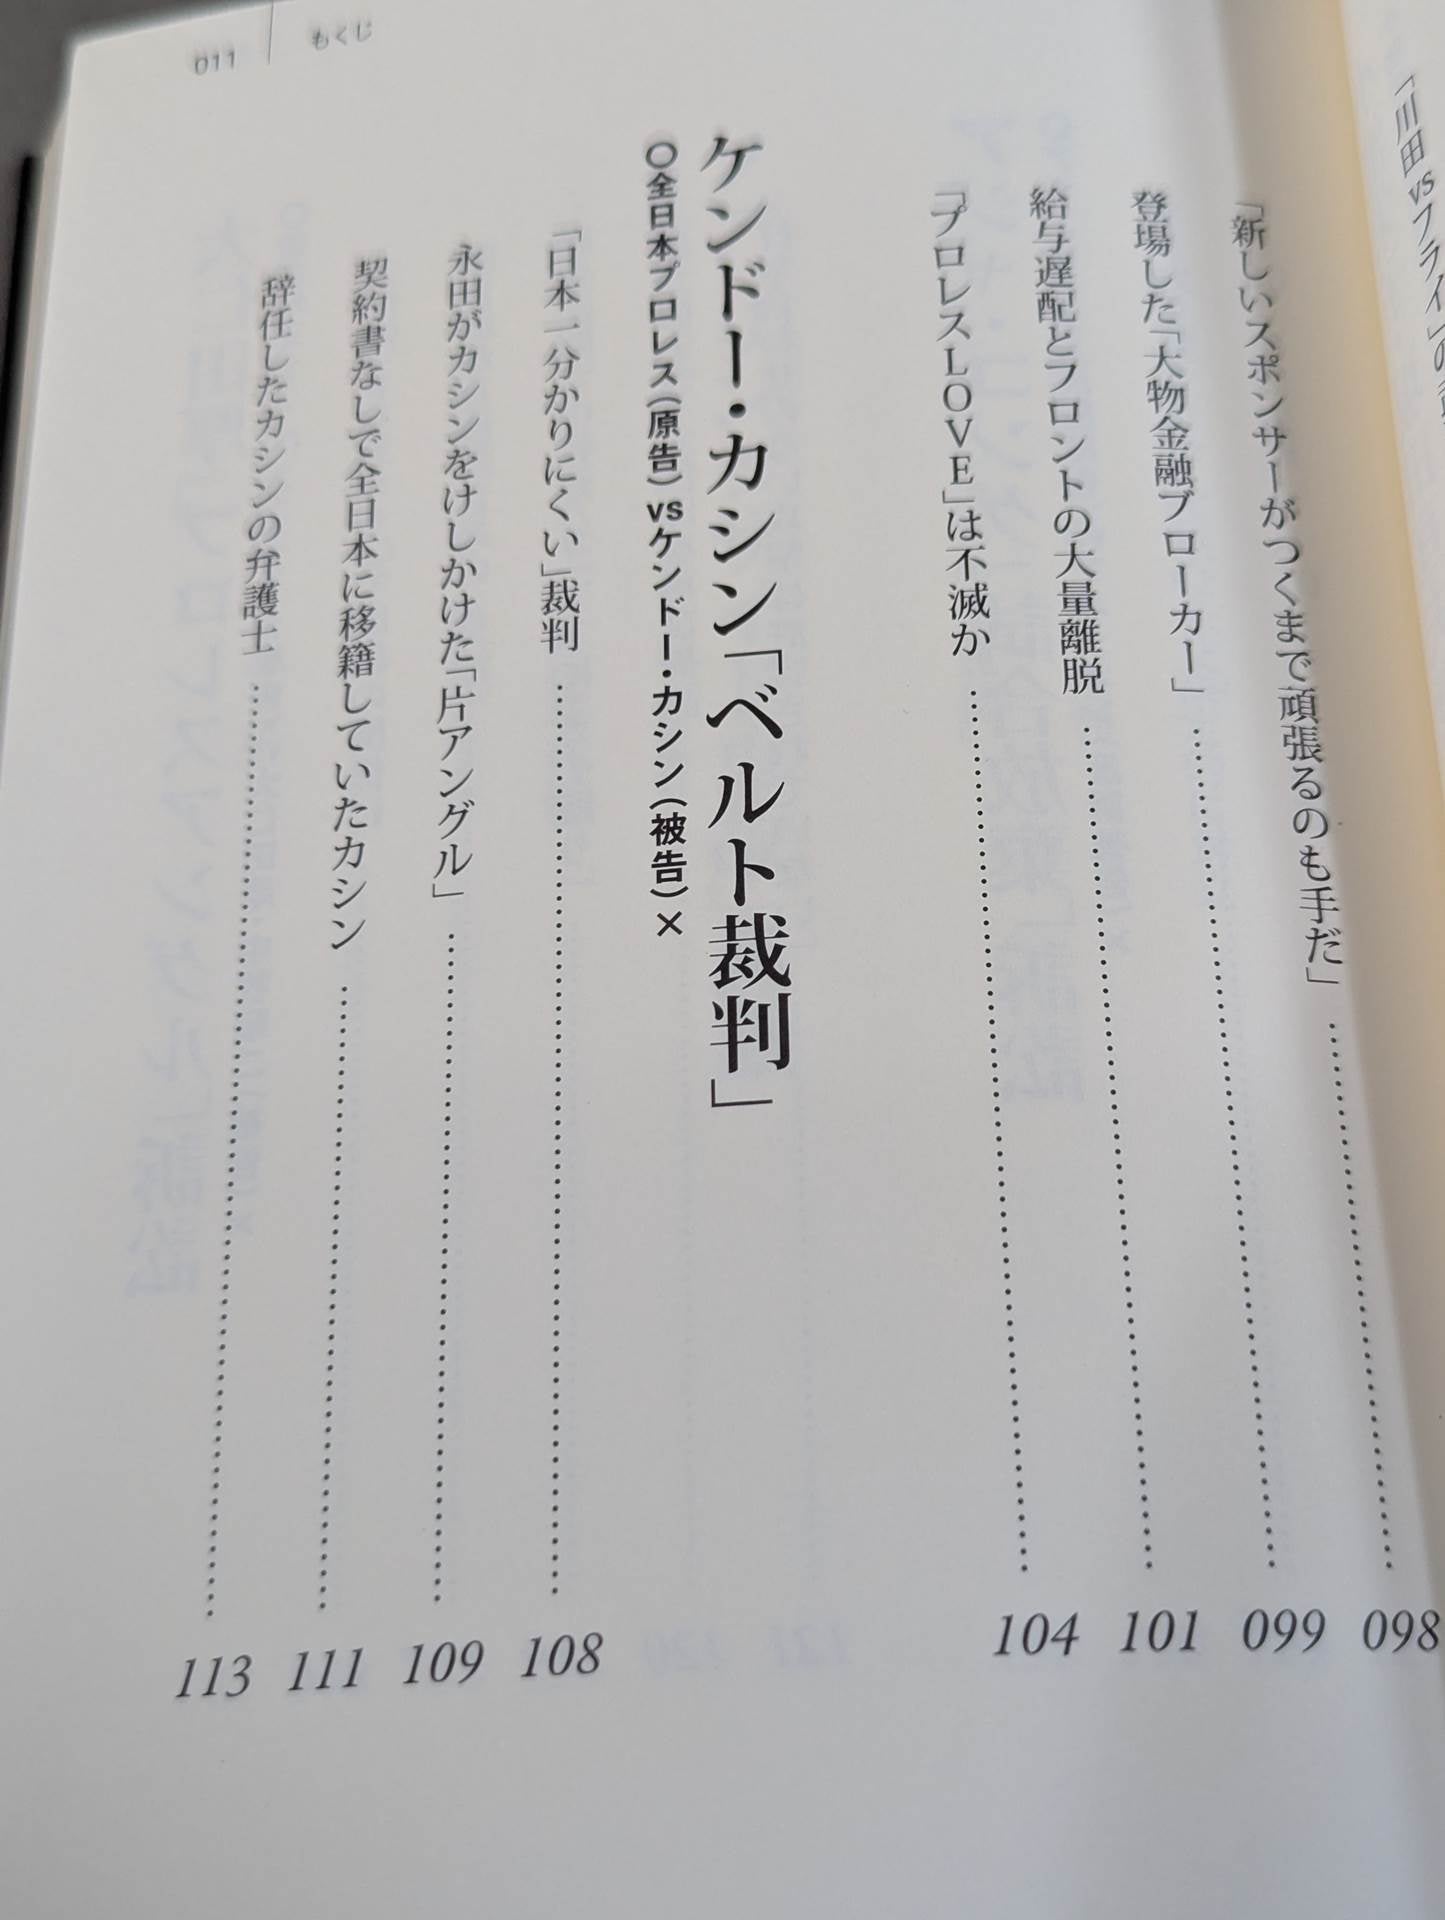 011 もくじ
「川田vsフライ」の
「新しいスポンサーがつくまで頑張るのも手だ」 098
登場した「大物金融ブローカー」 099
給与遅配とフロントの大量離脱 101
「プロレスLOVE」は不滅か 104
ケンドー・カシン「ベルト裁判」
○全日本プロレス（原告）vsケンドー・カシン（被告）×
「日本一分かりにくい」裁判 108
永田がカシンをけしかけた「片アングル」 109
契約書なしで全日本に移籍していたカシン 111
辞任したカシンの弁護士 113